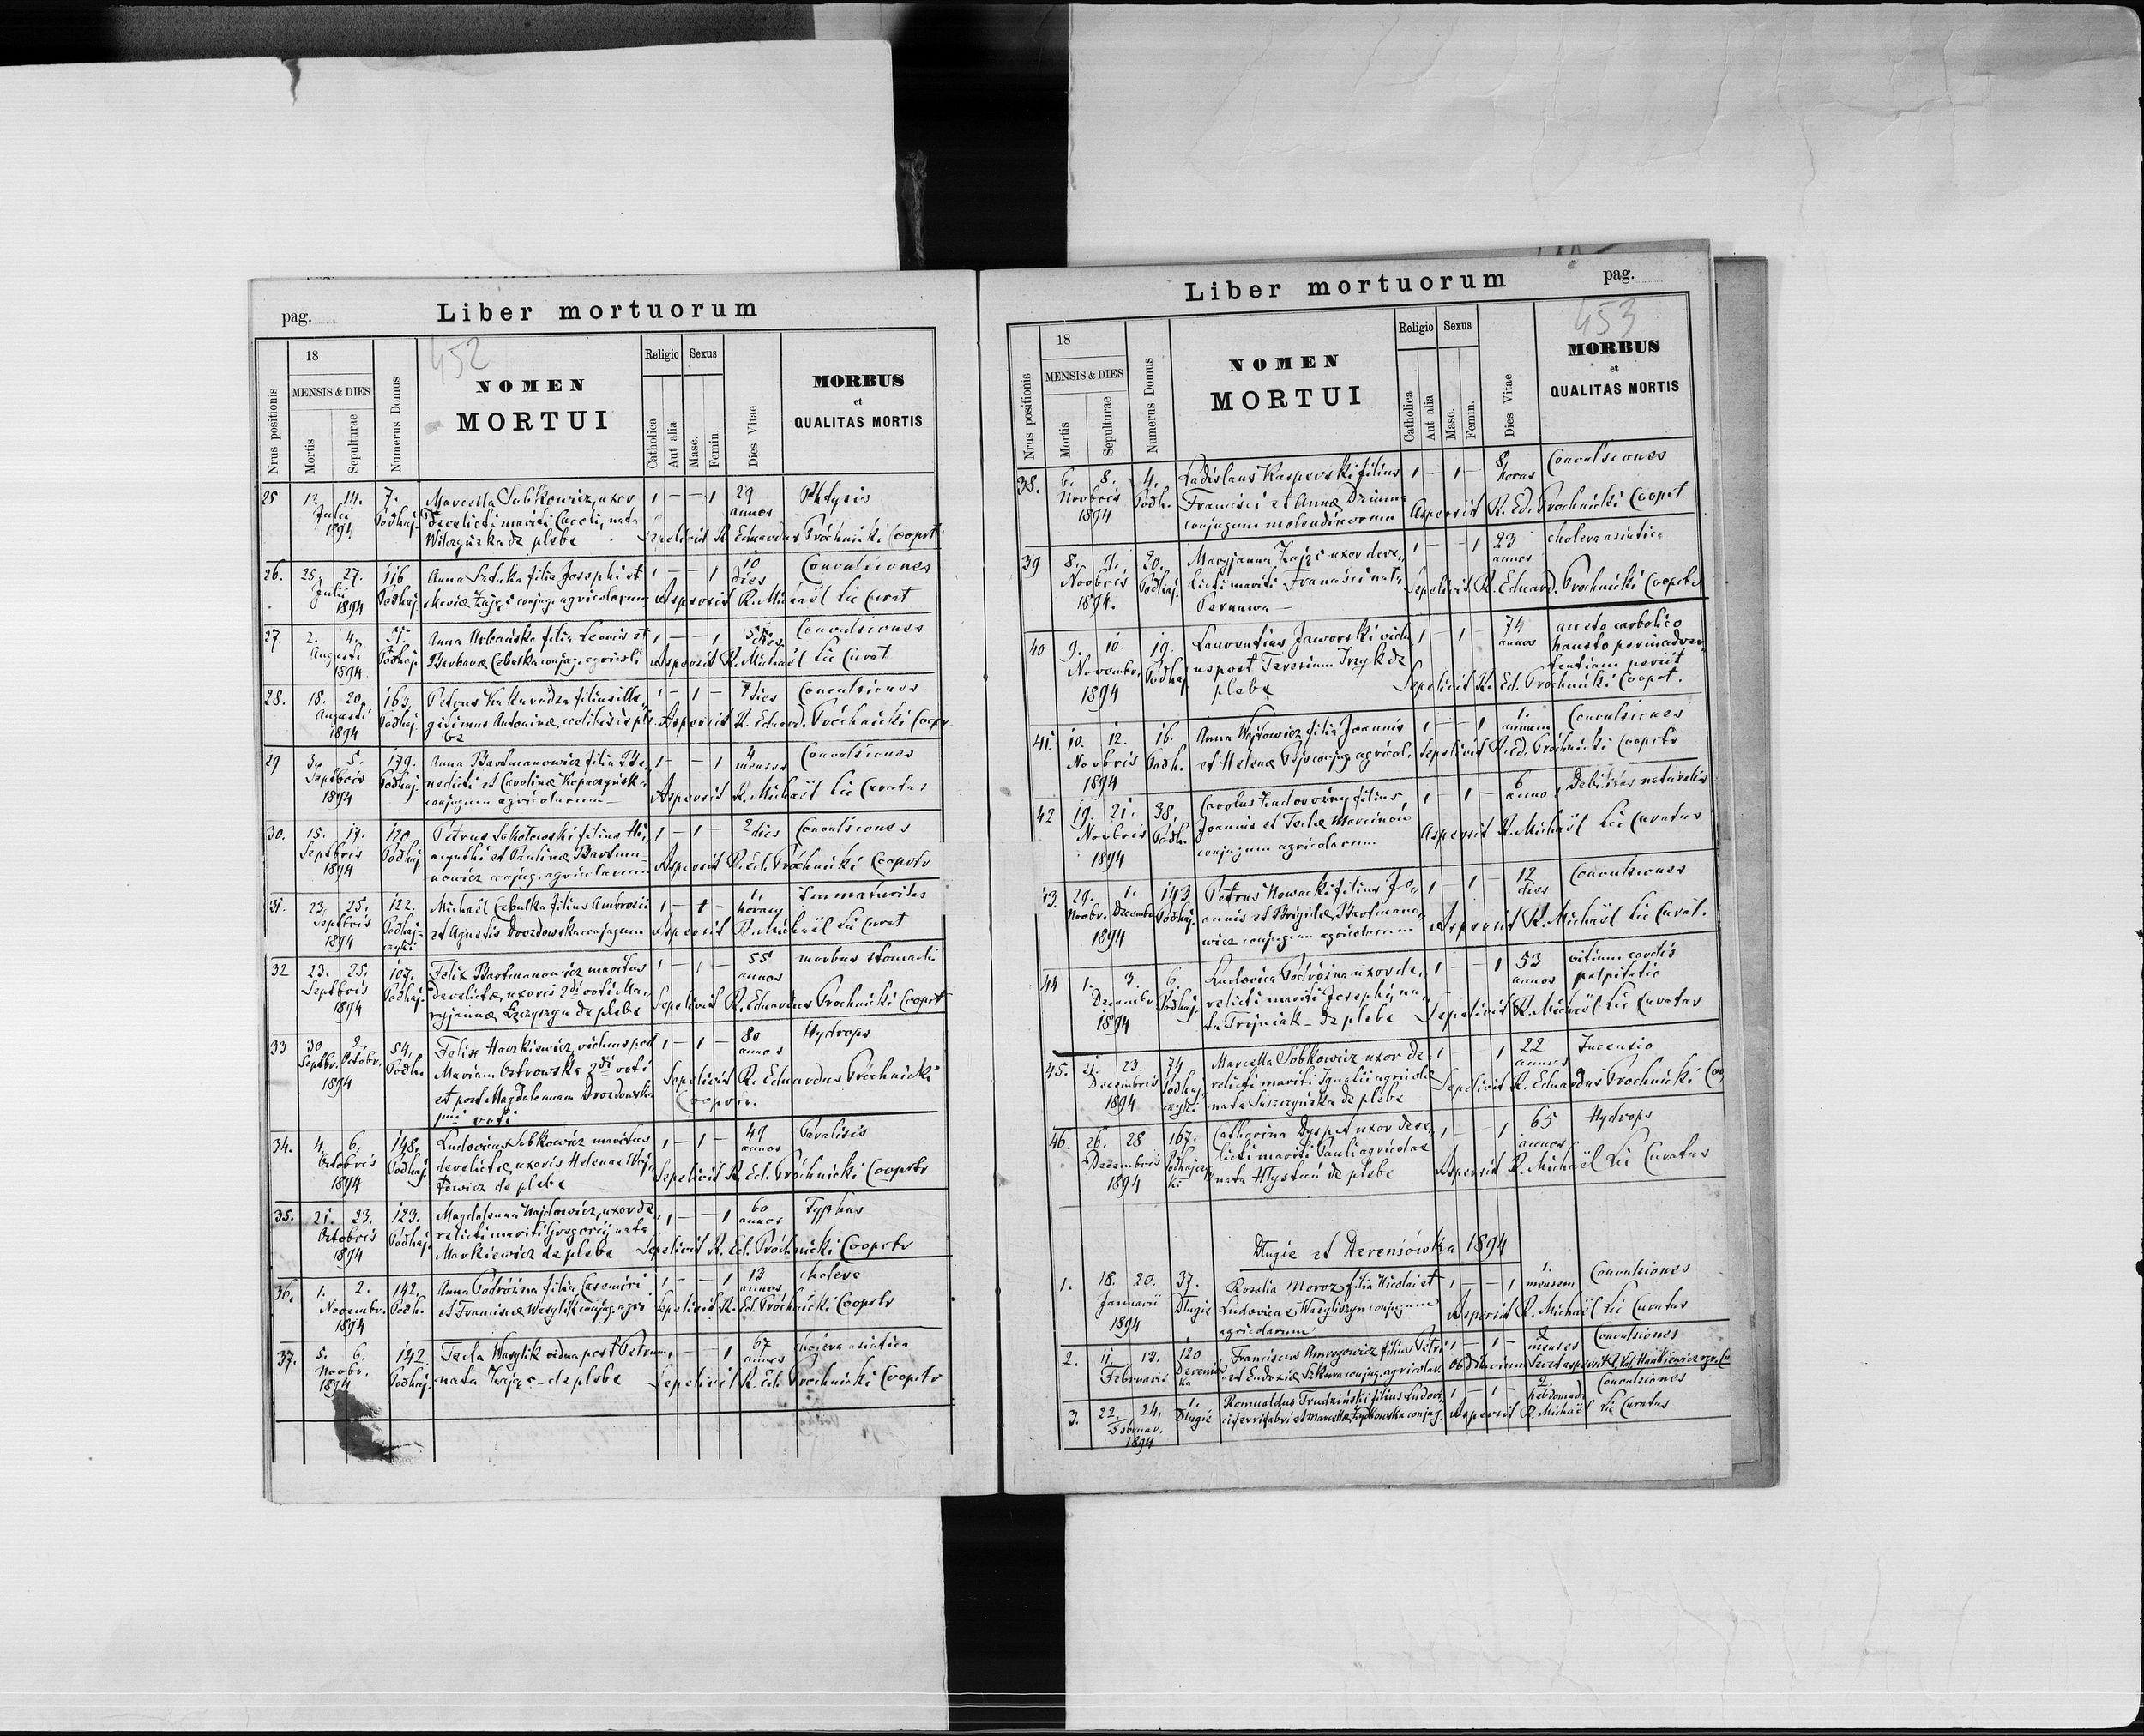 pag.
Liber mortuorum
452
Nrus positionis
18
MENSIS & DIES
Mortis
Sepulturae
Numerus Domus
NOMEN
MORTUI
Religio
Sexus
Catholica
Aut alia
Masc.
Femin.
Dies Vitae
MORBUS
et
QUALITAS MORTIS
25 7. Marcella Sobkowicz, uxor 1 — — 1 29 Phtysis
Julii Podhaj. derelicti mariti Caroli, nata annos
1894 de plebe Sepelivit R. Eduardus Próchnicki Cooprt
26. 25. 27. 116 Anna Sztuka filia Josephi et 1 — — 1 10 Convulsiones
Julii Podhaj. Mariæ Zając conjug. agricolarum dies
1894 Aspersit R. Michaël Lic Curat
27 2. 4. Anna filia Leonis et 1 — — 1 Convulsiones
Augusti Podhaj. Barbaræ Cebulka conjug. agricoli
1894 Aspersit R. Michaël Lic Curat
28. 18. 20. 163. Petrus filius ille, 1 — 1 — 7 dies Convulsiones
Augusti Podhaj. gitimus Antoninæ cœlibis de ple
1894 be Aspersit R. Eduard. Próchnicki Coopr
29 3. 5. 179. Anna Bartmanowicz filia Be, 1 — — 1 4 Convulsiones
Septbris Podhaj. nedicti et Carolinæ Kopaczyńska menses
1894 conjugum agricolarum — Aspersit R. Michaël Lic Curatus
30. 15. 17. 120. Petrus Sokołowski filius Hi, 1 — 1 — 2 dies Convulsiones
Septbris Podhaj. acynthi et Paulinæ Bartma-
1894 nowicz conjug. agricolarum Aspersit R. Ed. Próchnicki Cooprtr
31. 23. 25. 122. Michaël Cebulka filius Ambrosii 1 — 1 — 1. Immaturitas
Septbris Podhaj- et Agnetis Drozdowska conjugum horam
1894 czyki Aspersit R. Michaël Lic Curat
32 23. 25. 107. Felix Bartmanowicz maritus 1 — 1 — 55 morbus stomachi
Septbris Podhaj. derelictæ uxoris 2di voti Ma, annos
1894 ryjannæ de plebe Sepelivit R. Eduardus Prochnicki Cooprt
33 30 2. 54. Felix Haczkiewicz viduus post 1 — 1 — 80 Hydrops
Septbr. Octobr. Podh. Mariam Ostrowska 2di voti annos
1894 et post Magdalenam Drozdowska Sepelivit R. Eduardus Próchnicki
pmi voti Cooprtr.
34. 4. 6. 148. Ludovicus Sobkowicz maritus 1 — 1 — 49 Paralisis
Octobris Podhaj. derelictæ uxoris Helenae Woj, annos
1894 towicz de plebe Sepelivit R. Ed. Próchnicki Cooprtr
35. 21. 23. 123. Magdalena Wojtowicz, uxor de 1 — — 1 60 Typhus
Octobris Podhaj. relicti mariti Gregorii, nata annos
1894 Markiewicz de plebe Sepelivit R. Ed. Próchnicki Cooprtr
36. 1. 2. 142. Anna Podróżna filia Casimiri 1 — — 1 13 cholera
Novembr. Podh. et Franciscæ Wasylik conjug. agric annos
1894 Sepelivit R. Ed. Próchnicki Cooprtr
37. 5. 6. 142. Tecla Wasylik vidua post Petrum 1 — — 1 67 cholera asiatica
Novbr. Podhaj. nata Zając — de plebe annos
1894 Sepelivit R. Ed. Prochnicki Cooprtr
Liber mortuorum
pag.
453
Nrus positionis
18
MENSIS & DIES
Mortis
Sepulturae
Numerus Domus
NOMEN
MORTUI
Religio
Sexus
Catholica
Aut alia
Masc.
Femin.
Dies Vitae
MORBUS
et
QUALITAS MORTIS
38. 6. 8. 4. Ladislaus Kasperski filius 1 — 1 — 8 Convulsiones
Novbris Podh. Francisci et Annæ horas
1894 conjugum molendinorum Aspersit R. Ed. Prochnicki Cooprt.
39 8. 9. 20. Maryjanna Zając uxor dere, 1 — — 1 23 cholera asiatica
Novbris Podhaj. licti mariti Francisci nata annos
1894. Sepelivit R. Eduard. Prochnicki Cooprtr
40 9. 10. 19. Laurentius Jaworski vidu, 1 — 1 — 74 aceto carbolico
Novembr. Podhaj us post Teresiam de annos hausto per inadver,
1894 plebe tentiam periit
Sepelivit R. Ed. Prochnicki Cooprt.
41. 10. 12. 16. Anna Wojtowicz filia Joannis 1 — — 1 1. Convulsiones
Novbris Podh. et Helenæ conjug. agricol. annum
1894 Sepelivit R. Ed. Próchnicki Cooprtr
42 19. 21. 38. Carolus Zadorożny filius 1 — 1 — 6 Debilitas naturalis
Novbris Podh. Joannis et Teclæ Marcinow annos
1894 conjugum agricolarum Aspersit R. Michaël Lic Curatus
43. 29. 1. 143. Petrus Nowacki filius Jo, 1 — 1 — 12 Convulsiones
Novbr. Decembr. Podhaj. annis et Brigidæ Bartmano, dies
1894 wicz conjugum agricolarum Aspersit R. Michaël Lic Curat.
44 1. 3. 6. Ludovica Podróżna uxor de, 1 — — 1 53 vitium cordis
Decembr. Podhaj. relicti mariti Josephi, na, annos palpitatio
1894 ta Trojniak — de plebe Sepelivit R. Michaël Lic Curatus
45. 21. 23. 74 Marcella Sobkowicz uxor de 1 — — 1 22 Incensio
Decembris Podhaj- relicti mariti Ignatii agricolæ annos
1894 czyki nata de plebe Sepelivit R. Eduardus Prochnicki Coop
46. 26. 28 167. Catharina uxor dere, 1 — — 1 65 Hydrops
Decembris Podhajczy licti mariti Pauli agricolae annos
1894 ki nata de plebe Aspersit R. Michaël Lic Curatus
Długie et Dereniówka 1894
1. 18. 20. 37. Rosalia Moroz filia Nicolai et 1 — — 1 1. Convulsiones
Januarii Długie Ludovicae conjugum mensem
1894 agricolarum Aspersit R. Michaël Lic Curatus
2. 11. 13. 120 Franciscus filius Petri 1 — 1 — 2 Convulsiones
Februarii Dereniów et Eudoxiæ conjug. agricolar. menses
ka
3. 22. 24. 1. Romualdus Trudziński filius Ludovi, 1 — 1 — 2. Convulsiones
Februar. Długie ci ferrifabri et Marcellæ conjug. hebdomada
1894 Aspersit R. Michaël Lic Curatus